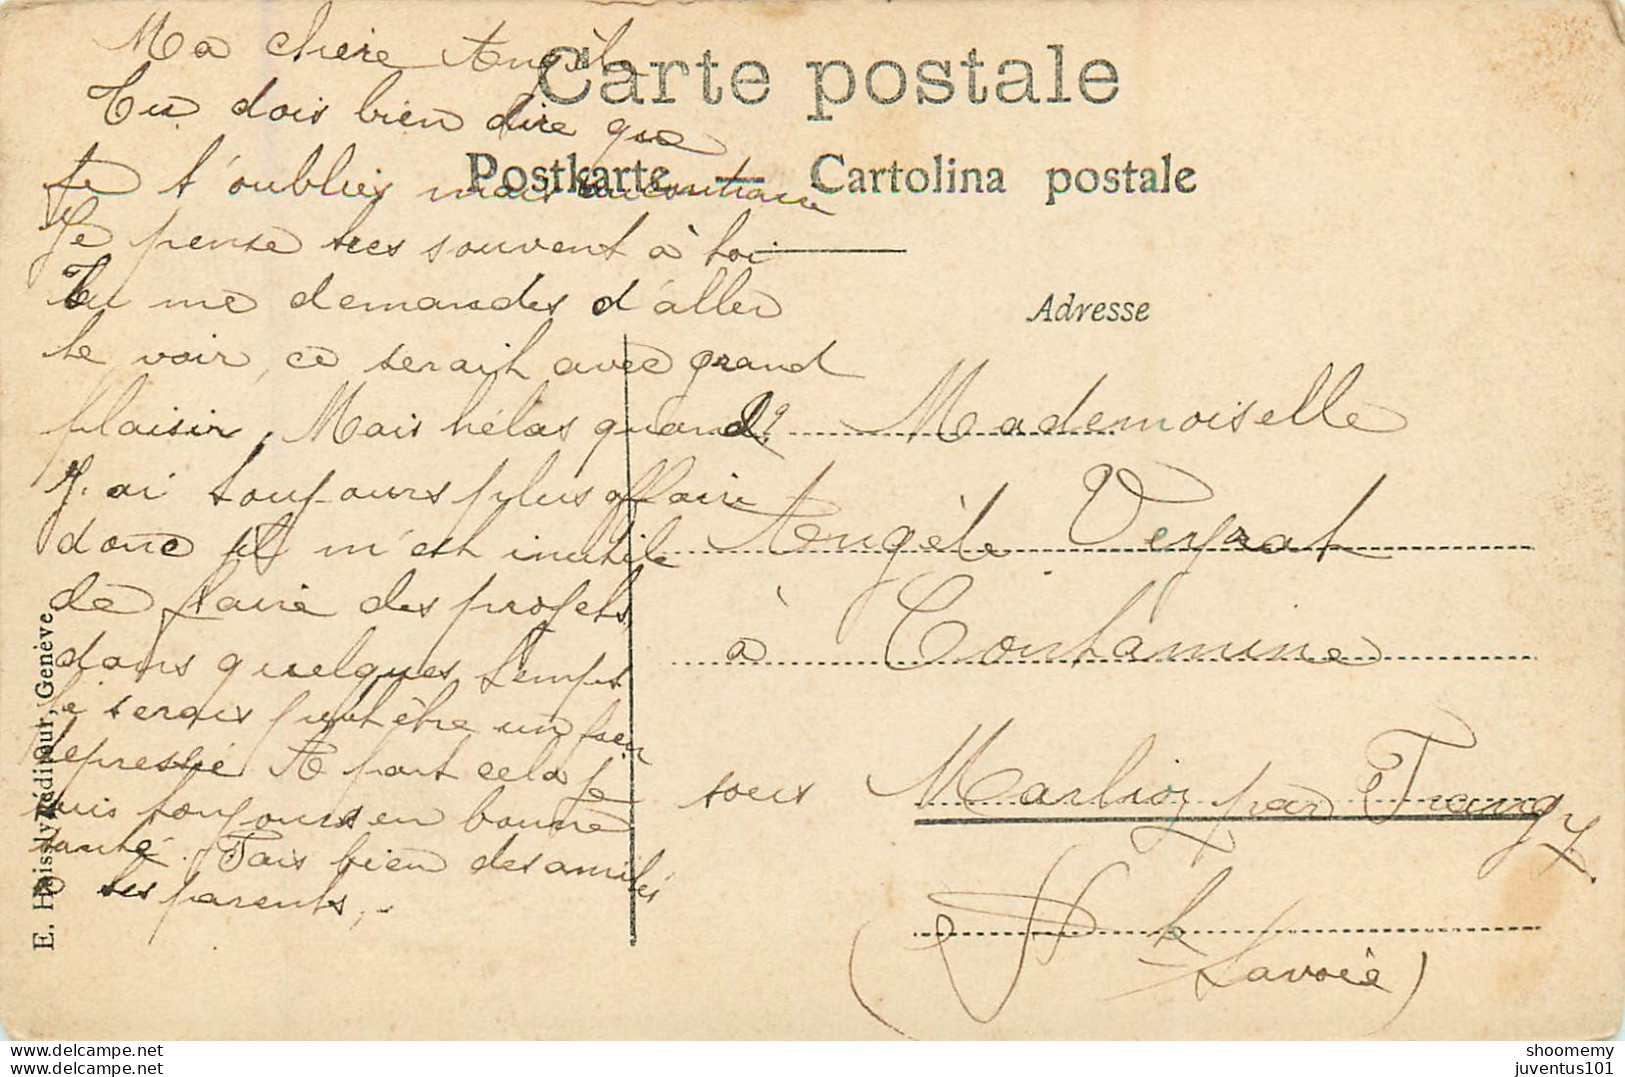 Carte postale
Postkarte — Cartolina postale
Adresse
Ma chère Angèl
Tu dois bien dire que
je t'oublies mais au contraire
Je pense tres souvent à toi
Tu me demandes d'aller
te voir, ce serait avec grand
plaisir, Mais hélas quand?
J'ai toujours plus affaire
donc il m'est inutile
de faire des projets,
dans quelques temps
je serais peut être un peu
represse A part cela je
suis toujours en bonne
santé. Fais bien des amitiés
a tes parents,
Mademoiselle
Angèle Veyrat
à Contamine
sous Marlioz par Frangy.
(Hte
Savoie)
E. Haissly, éditeur, Genève
delcampe.net
shoomemy
juventus101